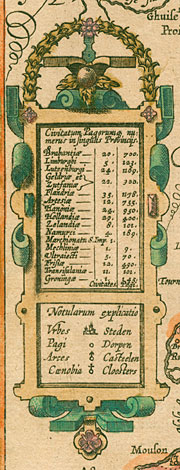 Ghuise
Civitatum Pagorumq nu-
merus in singulis Provincijs.
Brabantiæ 26. 700.
Limburgi 5. 123.
Lutzenburg 24. 1169.
Geldriæ et
Zutfaniæ 22. 300.
Flandriæ 35. 1178.
Artesiæ 12. 755.
Hanoniæ 24. 950.
Hollandiæ 29. 400.
Zelandiæ 8. 101.
Namurcū 4. 182.
Marchionatu S. Imp. 1.
Mechliniæ 1. 9.
Ultraiecti 5. 70.
Frisiæ 12. 490.
Transisulaniæ 11. 101.
Groningæ 1. 145.
Civitates Pagi
Notularum explicatio
Vrbes Steden
Pagi Dorpen
Arces Casteelen
Cœnobia Cloosters
Mouson